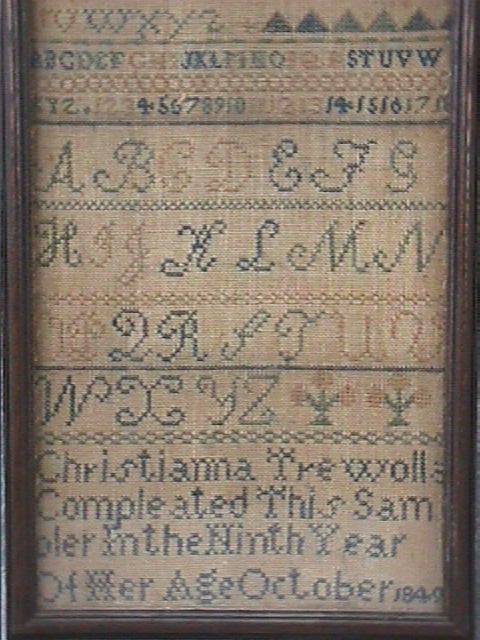 V W X Y Z
ABCDEFGHIJKLMNO STUVW
XYZ. 123 4 5 6 7 8 9 10 11 12 13 14 15 16 17 18
A B C D E F G
H I J K L M N
O P Q R S T U V
W X Y Z
Christianna Trewolla
Compleated This Sam
pler In the Ninth Year
Of Her Age October